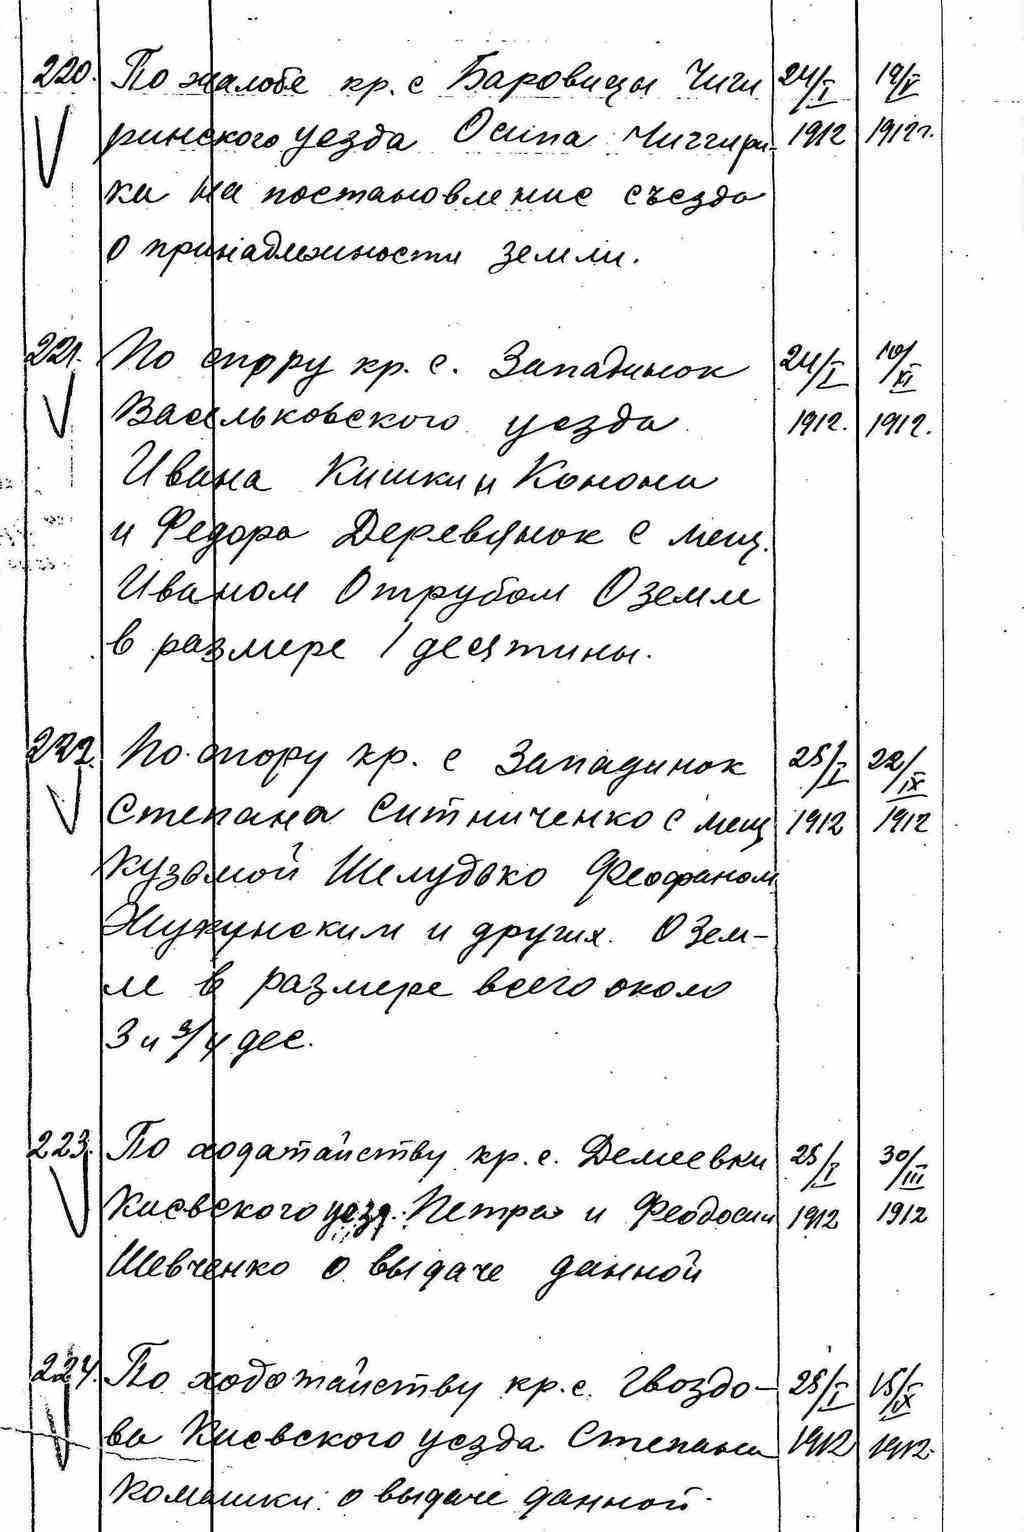 220. По жалобе кр. с Баровицы Чиги 24/I 19/V
ринского уезда Осипа Чиггири- 1912 1912 г.
ка на постановление съезда
о принадлежности земли.
221. По спору кр. с. Западинок 24/I 10/XI
Васильковского уезда 1912. 1912.
Ивана Кишки и Конона
и Федора Деревянок с мещ.
Иваном Отрубом О земле
в размере 1 десятины.
222. По спору кр. с Западинок 25/I 22/IX
Степана Ситниченко с мещ 1912 1912
Кузьмой Шелудько Феофаном
Жукунским и других. О зем-
ле в размере всего около
3 и 3/4 дес.
223. По ходатайству кр. с. Демиевки 25/I 30/III
Киевского уезд. Петра и Феодосии 1912 1912
Шевченко о выдаче данной
224. По ходотайству кр. с. Гвоздо- 25/I 15/IX
ва Киевского уезда Степана 1912 1912.
Комашки о выдаче данной.